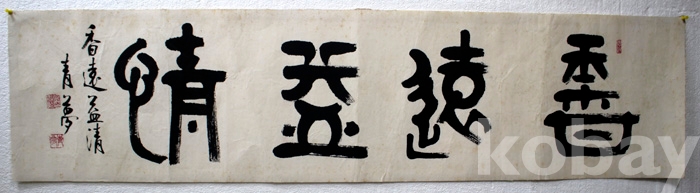 香遠益清
香遠益清
青夢
kobay